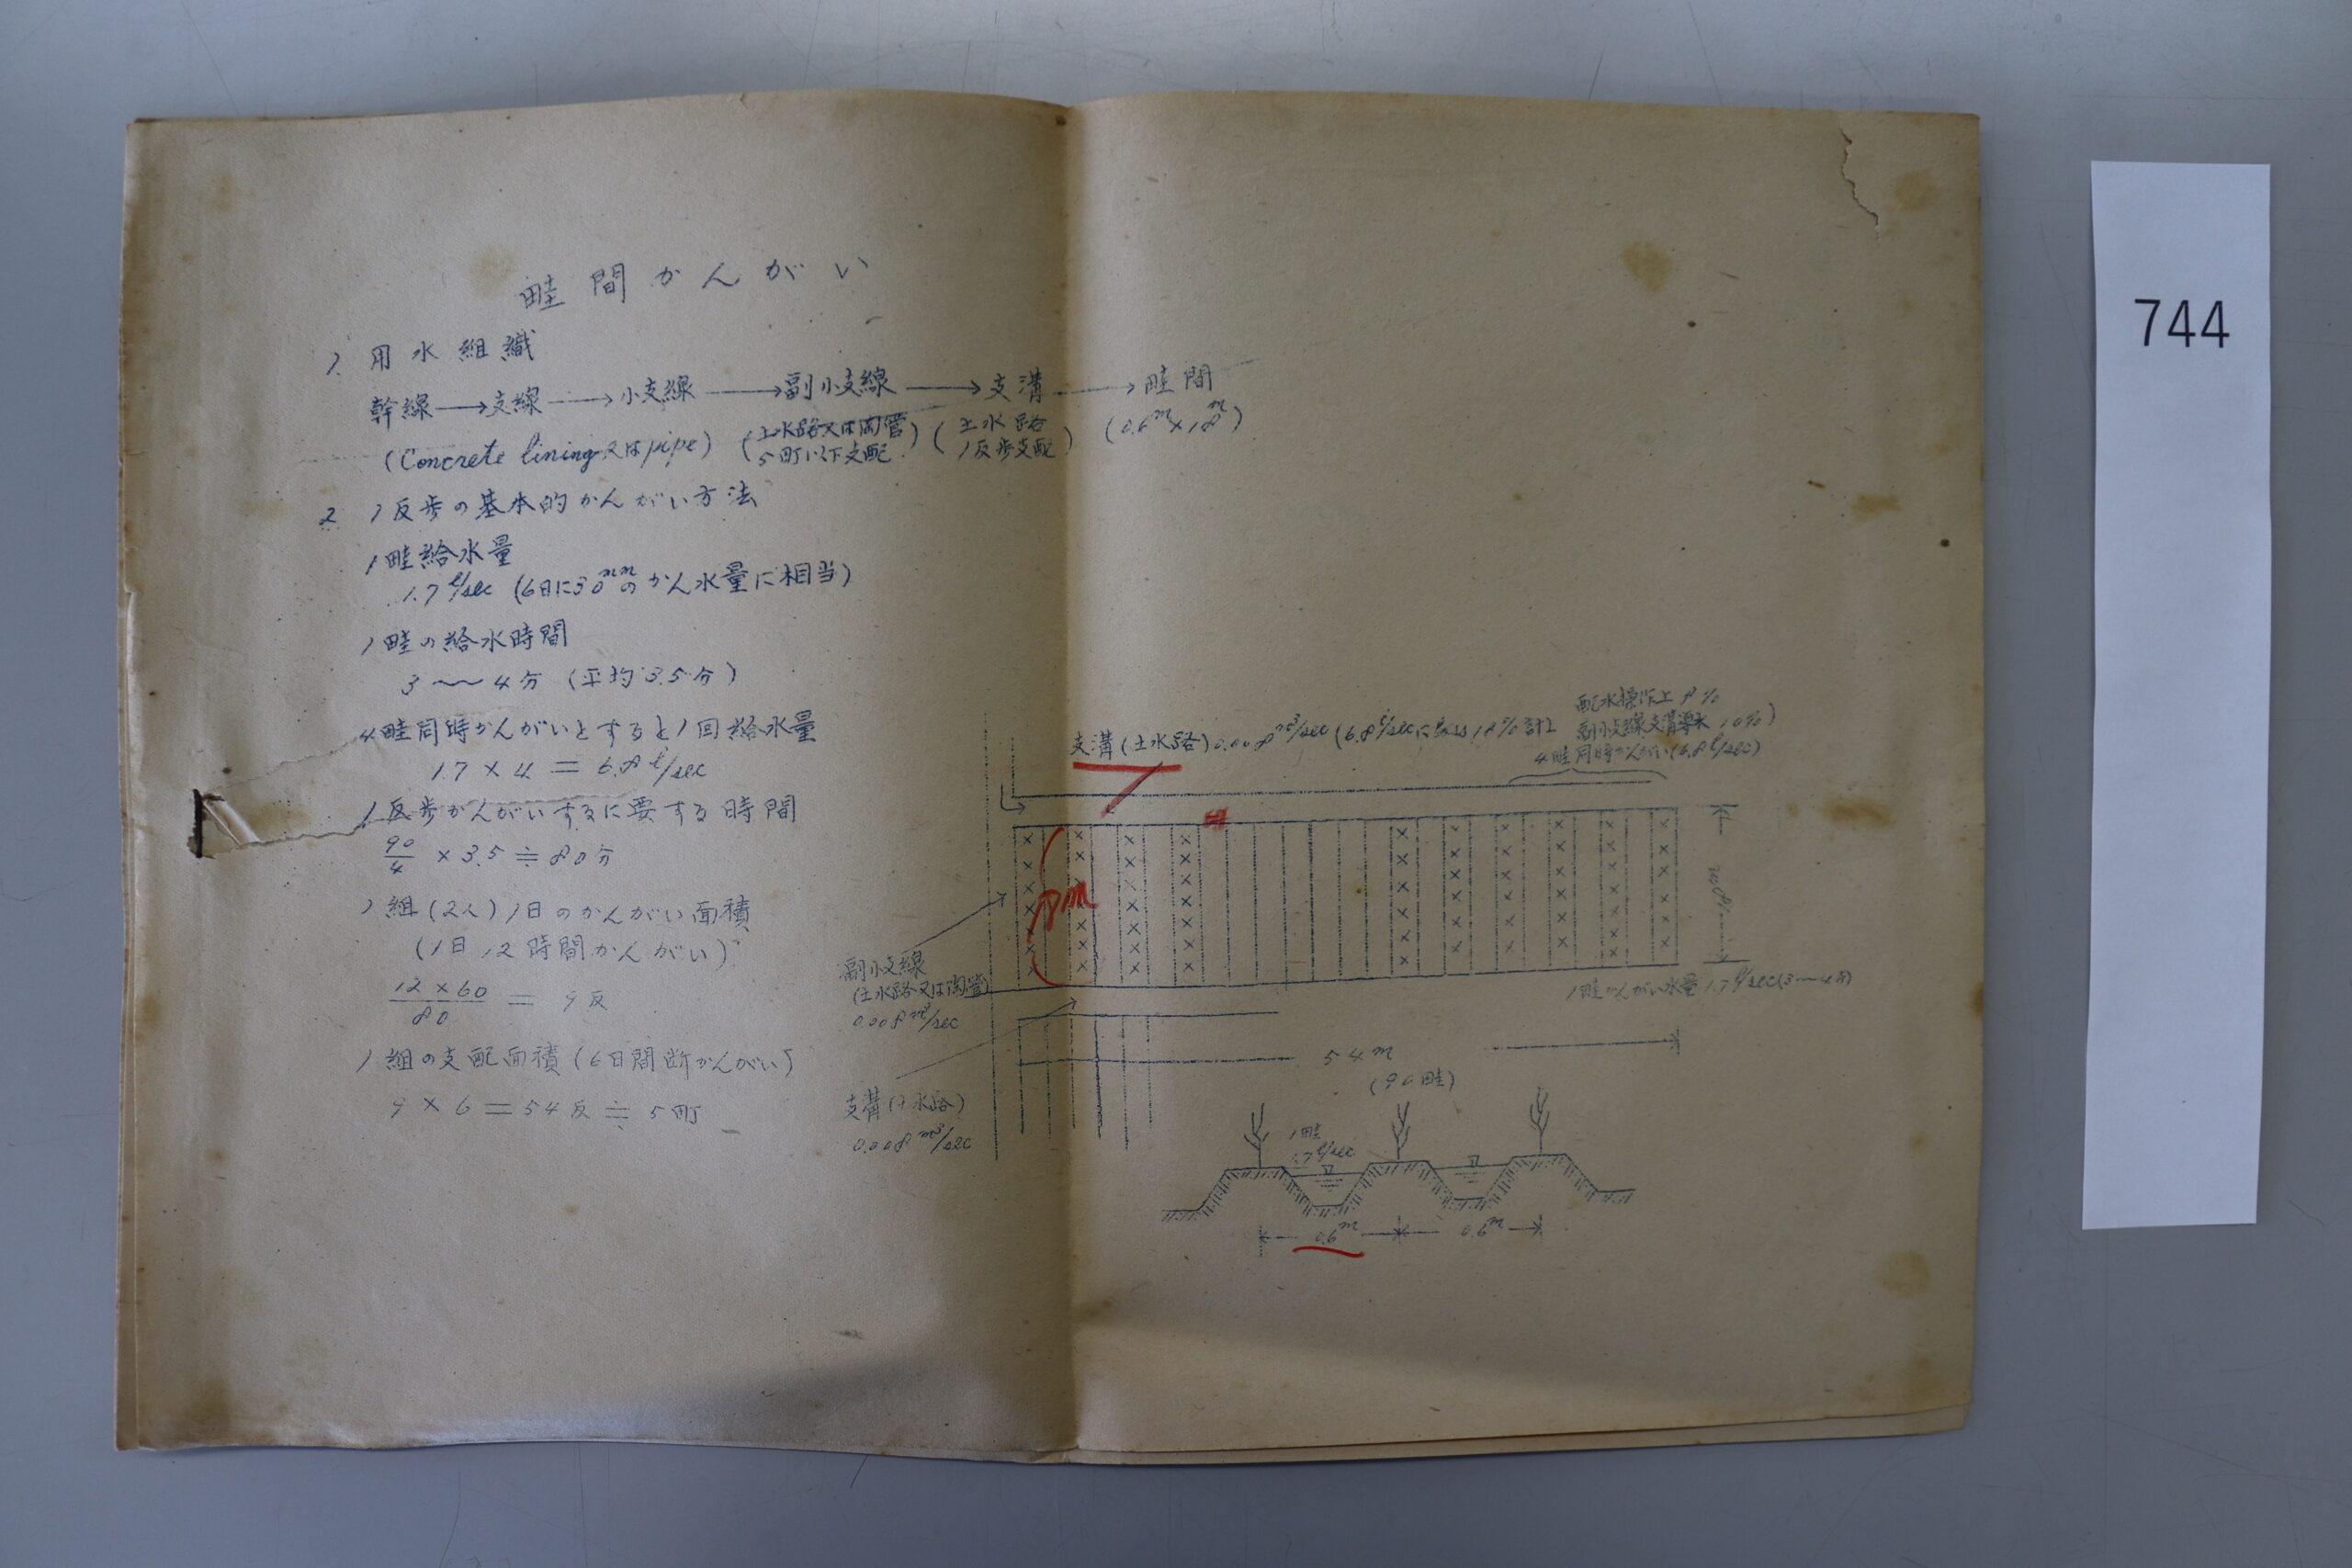 畦間かんがい
1. 用水組織
幹線→支線→小支線→副小支線→支溝→畦間
(Concrete lining又はpipe) (土水路又は陶管 5町以下支配) (土水路 1反歩支配) (0.6m×18m)
2. 1反歩の基本的かんがい方法
1畦給水量
1.7ℓ/sec (6日に30mmのかん水量に相当)
1畦の給水時間
3〜4分 (平均3.5分)
4畦同時かんがいとすると1回給水量
1.7 × 4 = 6.8ℓ/sec
1反歩かんがいするに要する時間
90/4 × 3.5 ≒ 80分
1組(2人)1日のかんがい面積
(1日12時間かんがい)
12×60/80 = 9反
1組の支配面積(6日間断かんがい)
9 × 6 = 54反 ≒ 5町
配水操作上 8%
副小支線支溝導水 10%)
支溝(土水路)0.008m³/sec(6.8ℓ/secに 18%計上
4畦同時かんがい(6.8ℓ/sec)
18m
18m
副小支線
(土水路又は陶管)
0.008m³/sec
1畦かんがい水量1.7ℓ/sec(3〜4分)
54m
(90畦)
支溝(土水路)
0.008m³/sec
1畦
1.7ℓ/sec
0.6m 0.6m
744